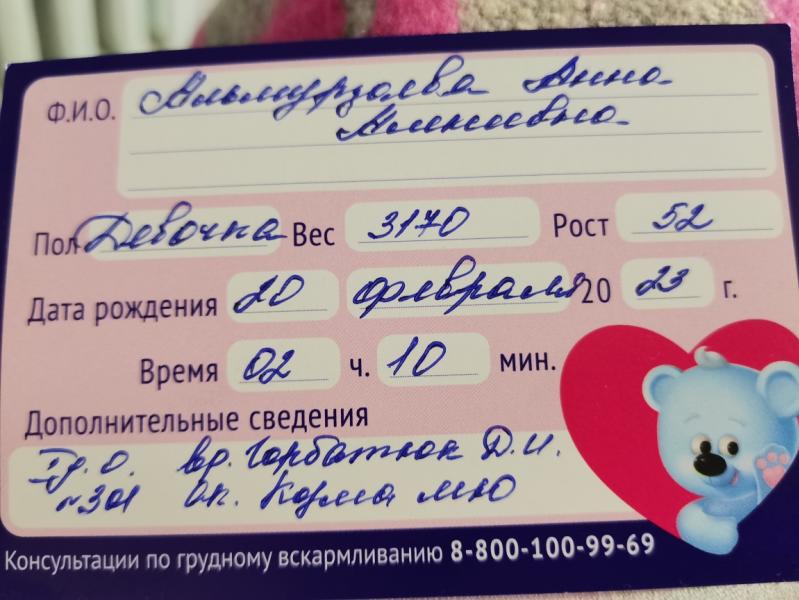 Ф.И.О. Альмурзаева Анна
Пол Девочка Вес 3170 Рост 52
Дата рождения 20 февраля 20 23 г.
Время 02 ч. 10 мин.
Дополнительные сведения
вр. Горбатюк Д.И.
№301 ак. Козма МЮ
Консультации по грудному вскармливанию 8-800-100-99-69